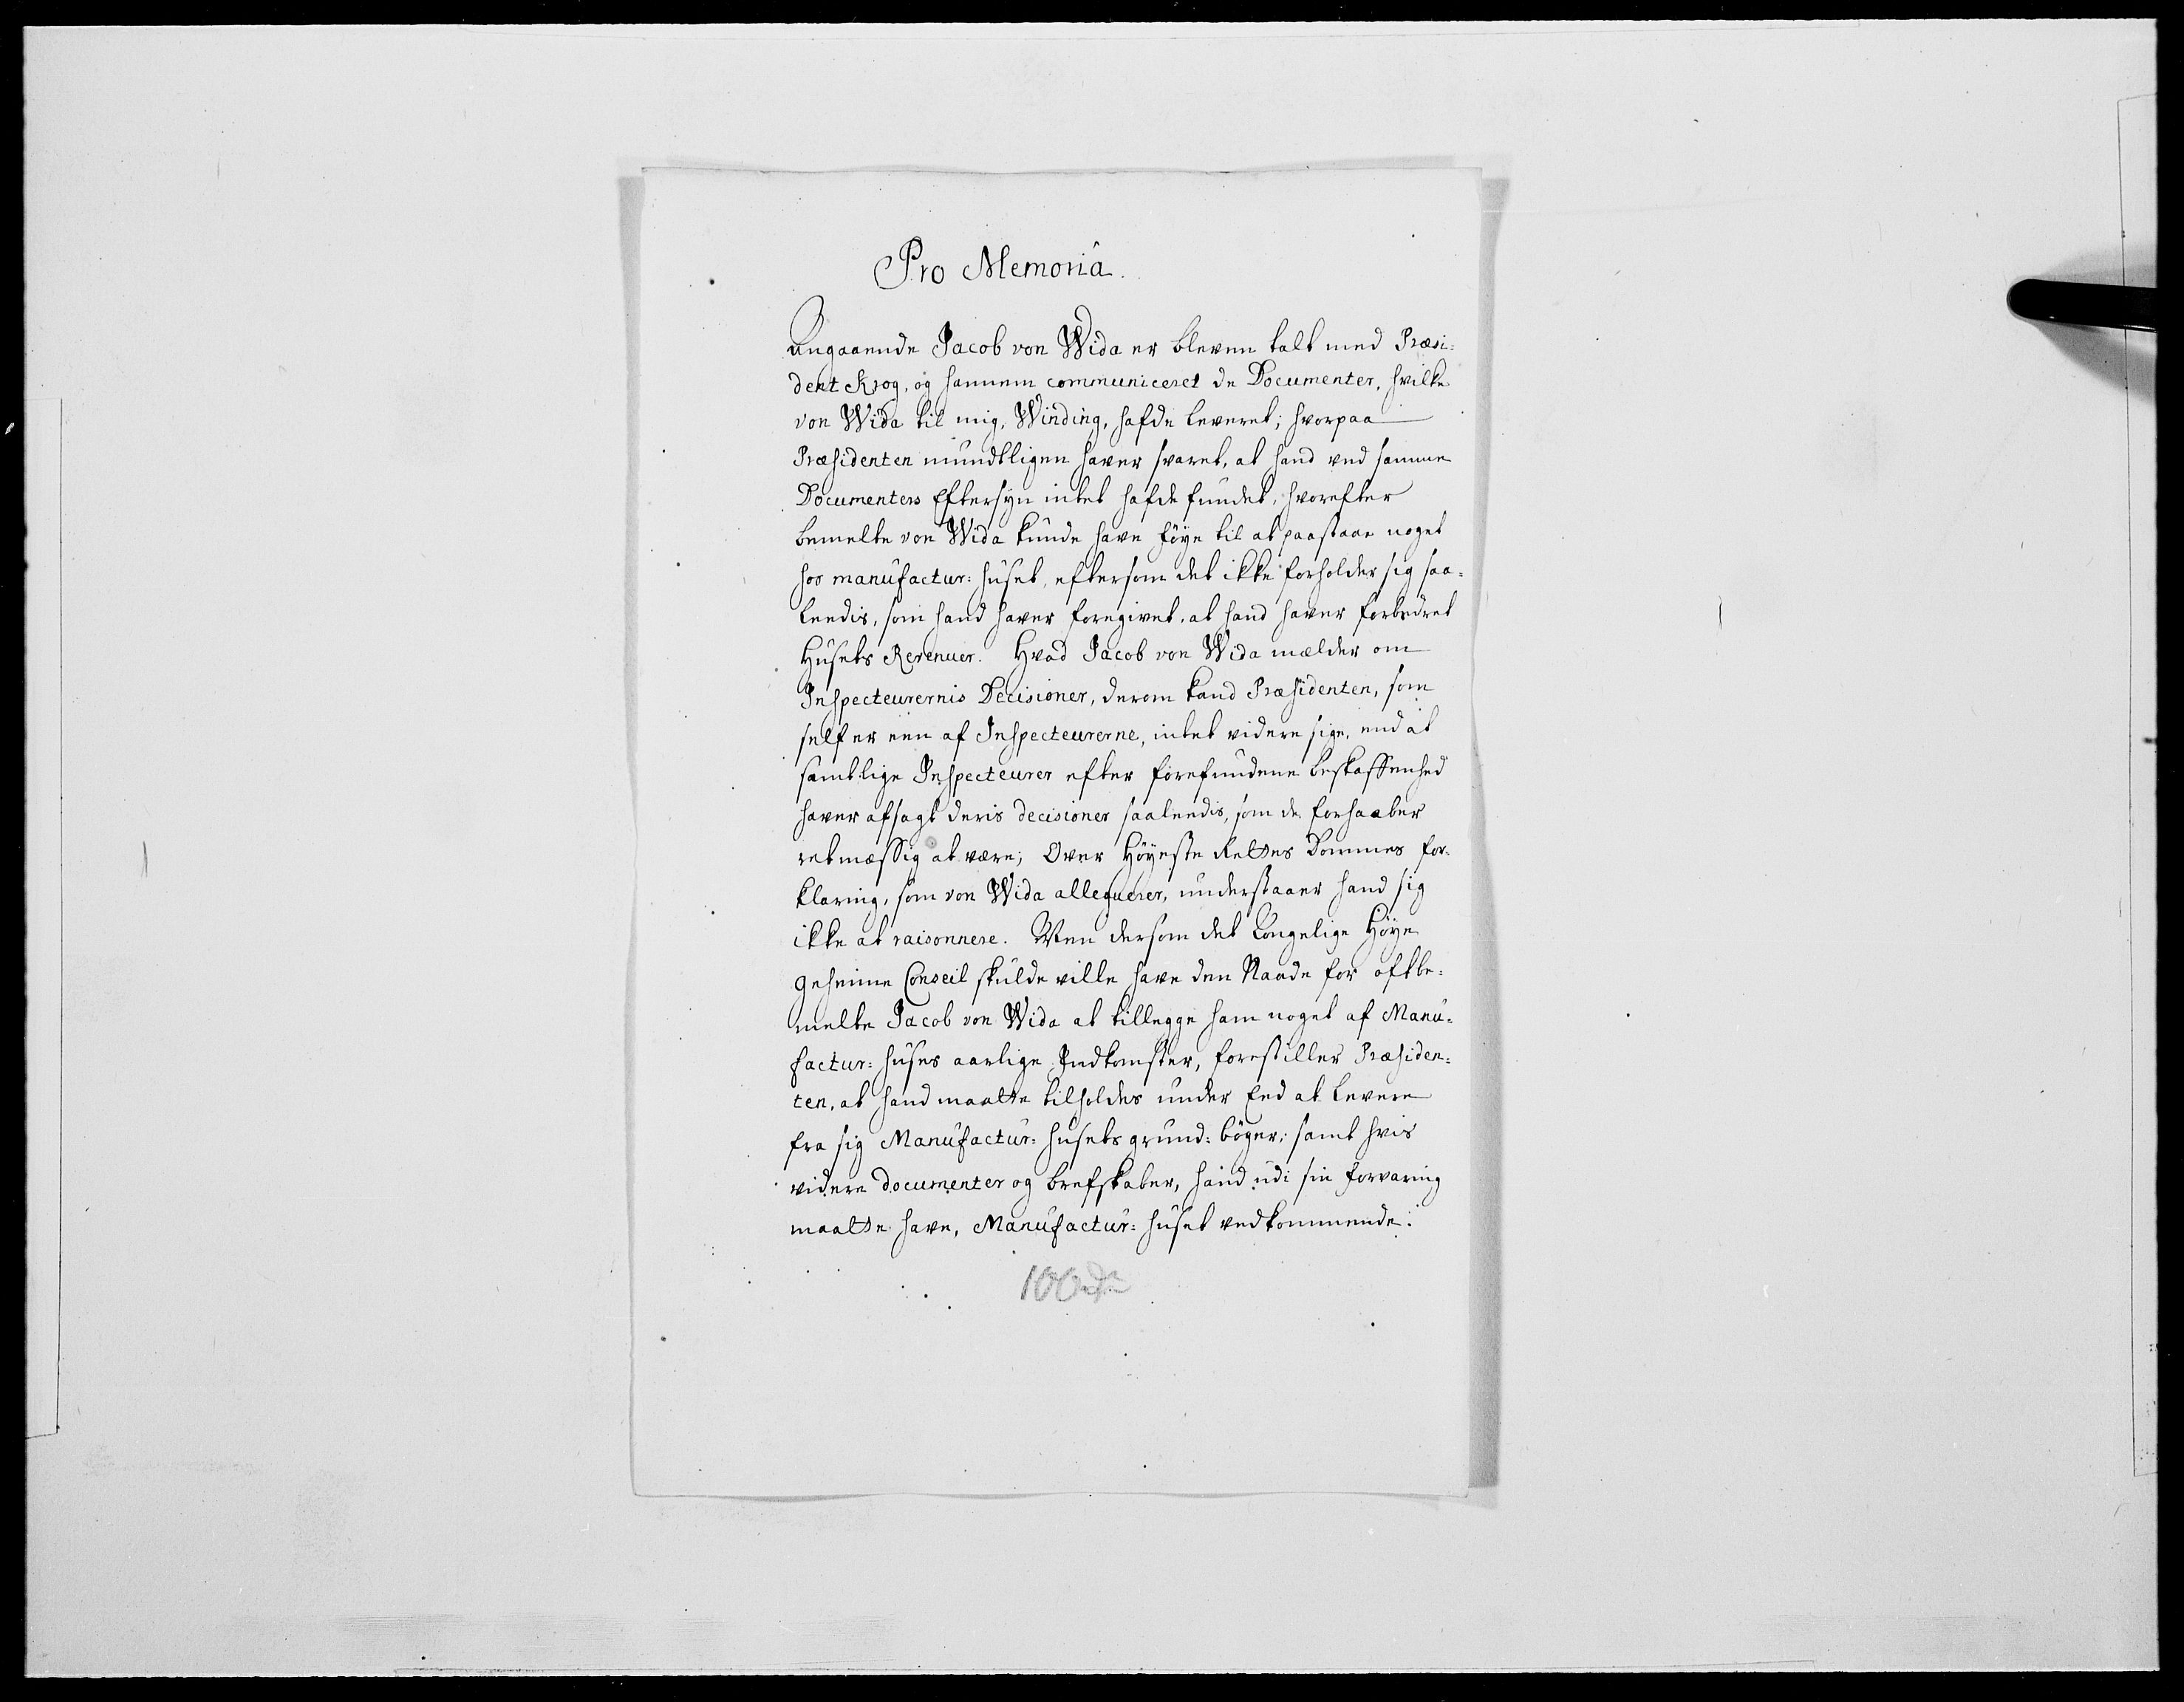 Pro Memoriâ.
Angaaende Jacob von Wida er bleven talt med Præsi-
dent Krog, og hannem communiceret de Documenter, hvilke
von Wida til mig, Winding, hafde leveret; hvorpaa
Præsidenten mundtligen haver svaret, at hand ved samme
Documenters Eftersyn intet hafde fundet, hvorefter
bemelte von Wida kunde have föye til at paastaae noget
hos manufactur: huset, eftersom det ikke forholder sig saa-
leedis, som hand haver foregivet, at hand haver forbedret
Husets Revenuer. Hvad Jacob von Wida mælder om
Inspecteurernis Decisioner, derom kand Præsidenten, som
self er een af Inspecteurerne, intet videre sige, end at
samtlige Inspecteurer efter forefundene beskaffenhed
haver afsagt deris decisioner saaleedis, som de forhaaber
retmæssig at være; Over Höyeste Rettes Dommes for-
klaring, som von Wida alleguerer, understaaer hand sig
ikke at raisonnere. Men dersom det Kongelige Höye
geheime Conseil skulde ville have den Naade for oftbe-
melte Jacob von Wida at tillegge ham noget af Manu-
factur: huses aarlige Indkomster, forestiller Præsiden-
ten, at hand maatte tilholdes under Eed at levere
fra sig Manufactur: husets grund: böger, samt hvis
videre documenter og brefskaber, hand udi sin forvaring
maatte have, Manufactur: huset vedkommende.
100